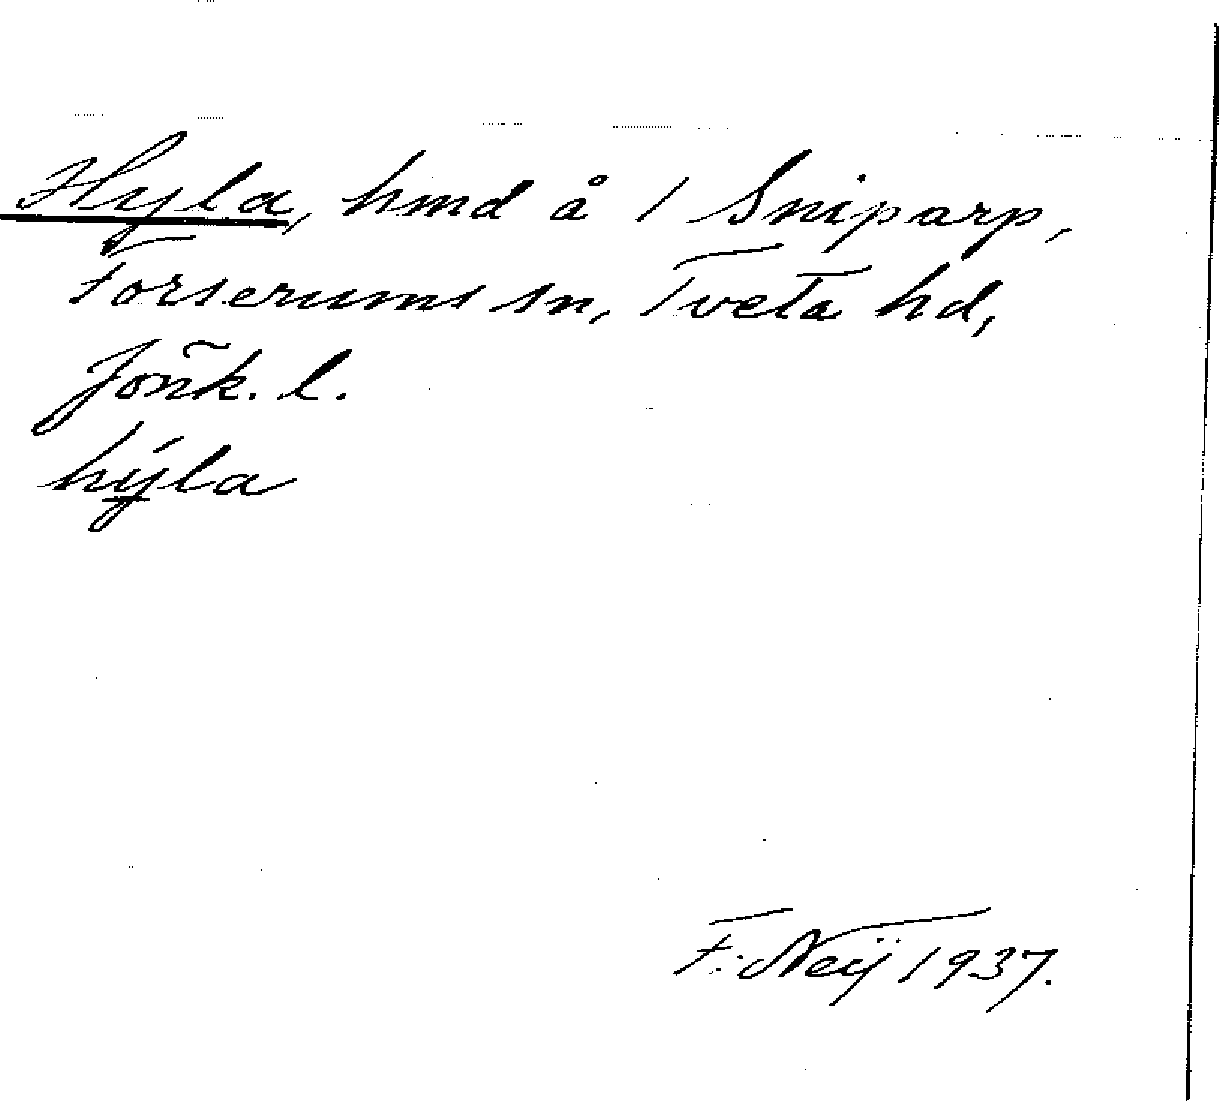 Hyla, hmd å 1 Sniparp,
Forserums sn, Tveta hd,
Jönk. l.
hýla
F. Neij 1937.